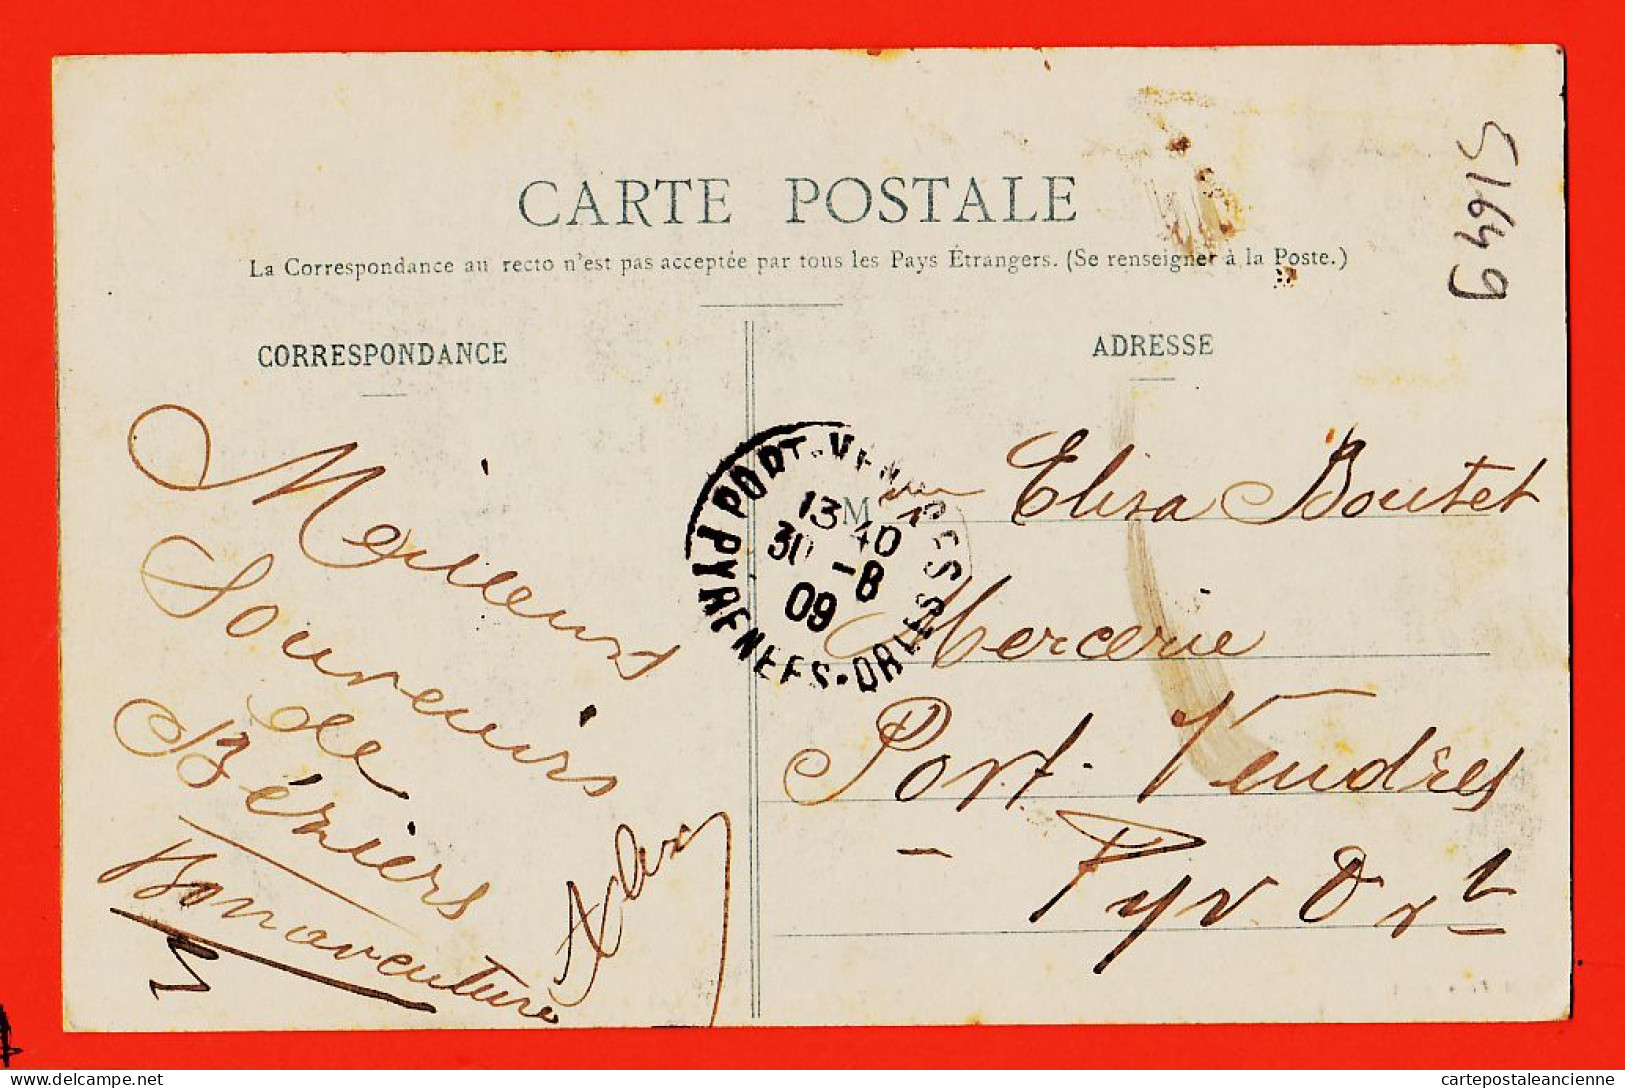 CARTE POSTALE
La Correspondance au recto n'est pas acceptée par tous les Pays Étrangers. (Se renseigner à la Poste.)
51649
CORRESPONDANCE
Meilleurs
Souvenirs
de
Béziers
Bonaventure
ADRESSE
PORT-VENDRES
13 40
30 -8
09
PYRENEES-ORIES
M
Elisa Boutet
Mercerie
Port-Vendres
- Pyr Or
delcampe.net
cartepostaleancienne